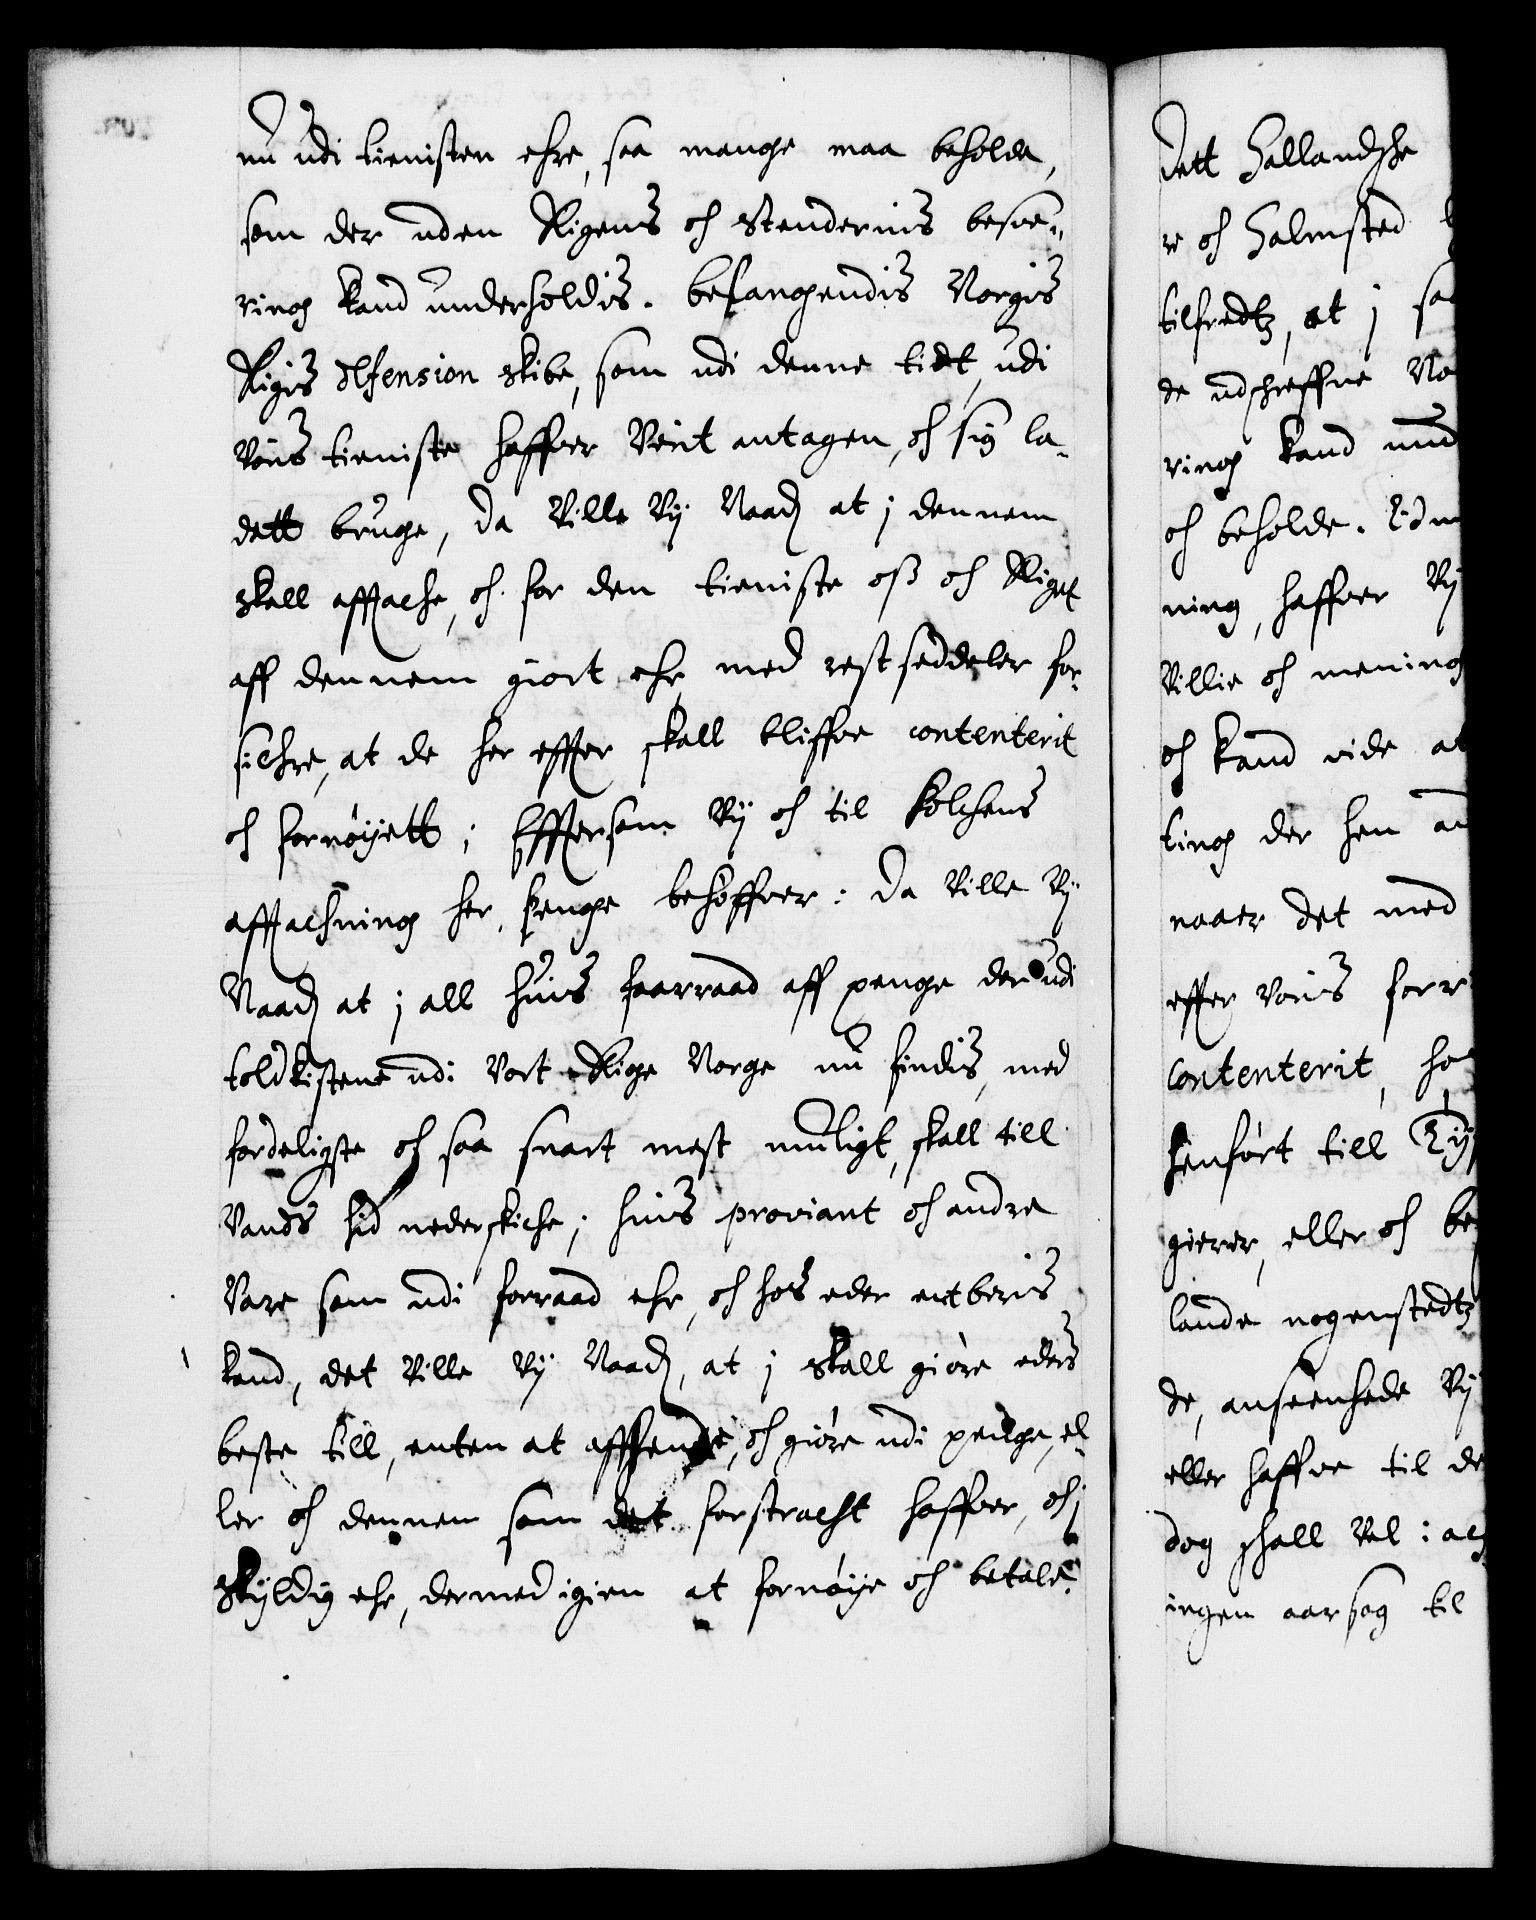 nu udi tienisten ehre, saa mange maa beholde,
som der uden Rigens och Stenderniis besue-
ring kand underholdis. belangendis Norgis
Rigis defension skibe, som udi denne tidt, udi
voris tieniste haffuer verit antagen, och sig la-
dett bruge, da ville vy Naadj at j dennem
skall afftache, och for den tieniste osz och Riget
aff dennem giort ehr, med restseddeler for-
sichre, at de her effter skall bliffve contenterit
och fornøyett; Efftersom vy och til folchens
afftachning her, penge behøffver: da ville vy
Naadj at j all huis faarraad aff penge der udi
toldkistene udi vort Rige Norge nu findis, med
forderligste och saa snart mest muligt, skall till
vands hid nederskiche; huis proviant och andre
vare som udi forraad ehr, och hos eder entberis
kand, det ville vy Naadj, at j skall giøre eders
beste till, enten at affhende, och giøre udi penge, el-
ler och dennem som det forstracht haffver, och j
skyldig ehr, dermed igien at fornøye och betale.
dett Hallandsche
re och Halmsted
tilfredtz, at j saa
de udschreffne No
ring kand und
och beholde.
ning, haffver vy
villie och mening
och kand vide at
ting der hen
naaer det med
effter voris forr
contenterit, ho
henført till
gierer, eller och be
lande nogenstedtz
de, anseenhede vy
eller haffve til de
dog schall vel i ac
ingen aarsag til